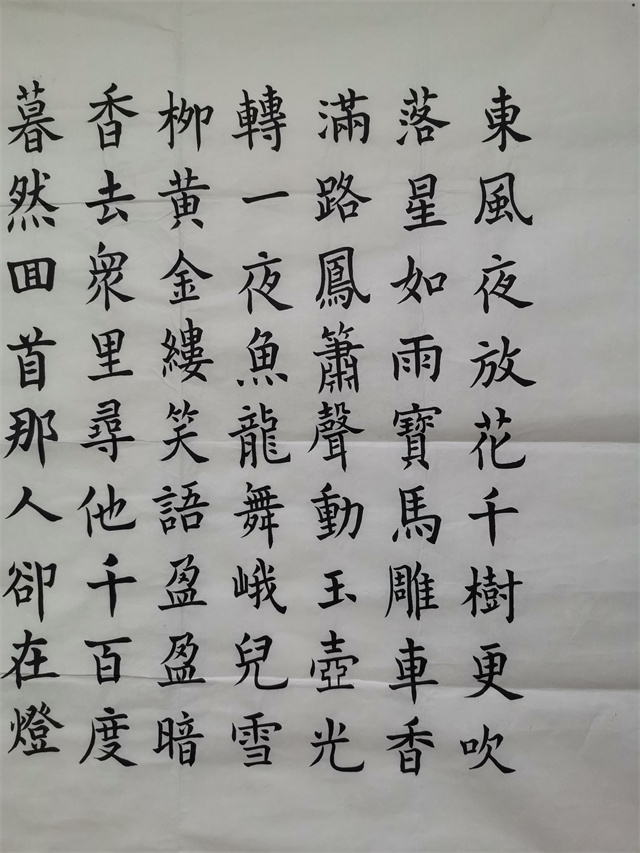 東風夜放花千樹更吹
落星如雨寶馬雕車香
滿路鳳簫聲動玉壺光
轉一夜魚龍舞峨兒雪
柳黃金縷笑語盈盈暗
香去衆里尋他千百度
暮然回首那人卻在燈